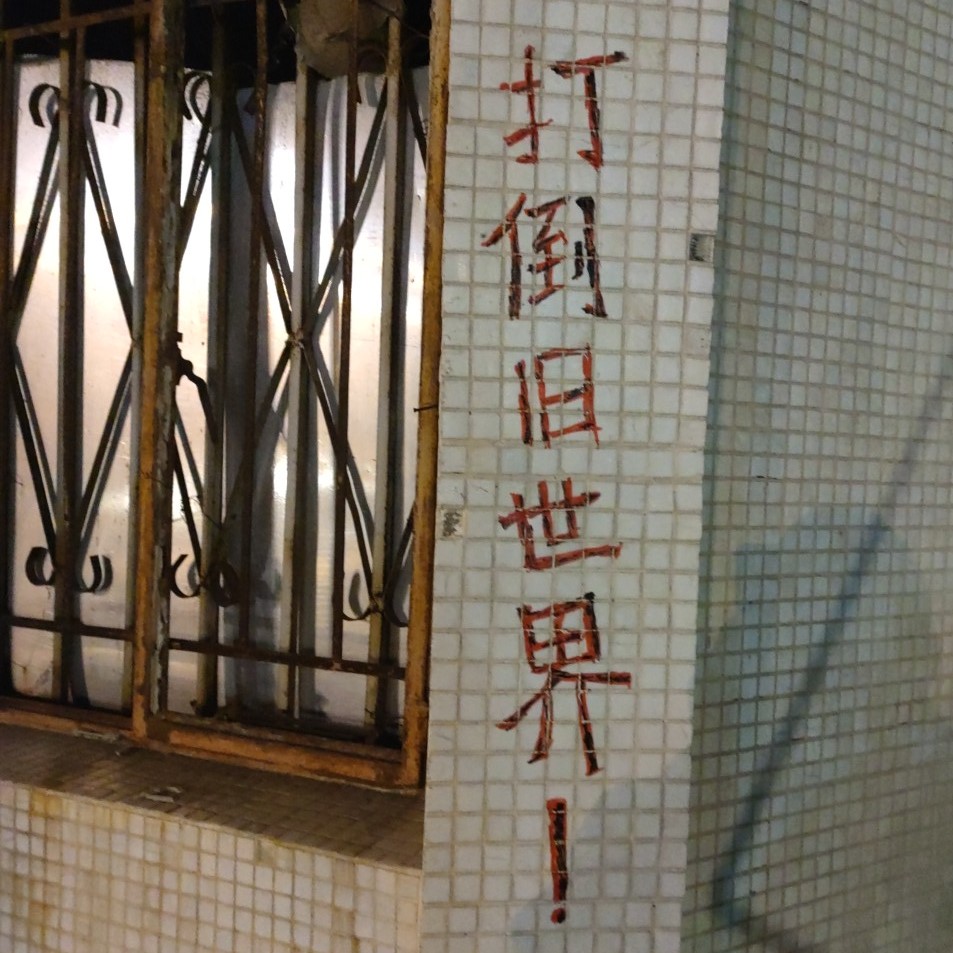 打倒旧世界!